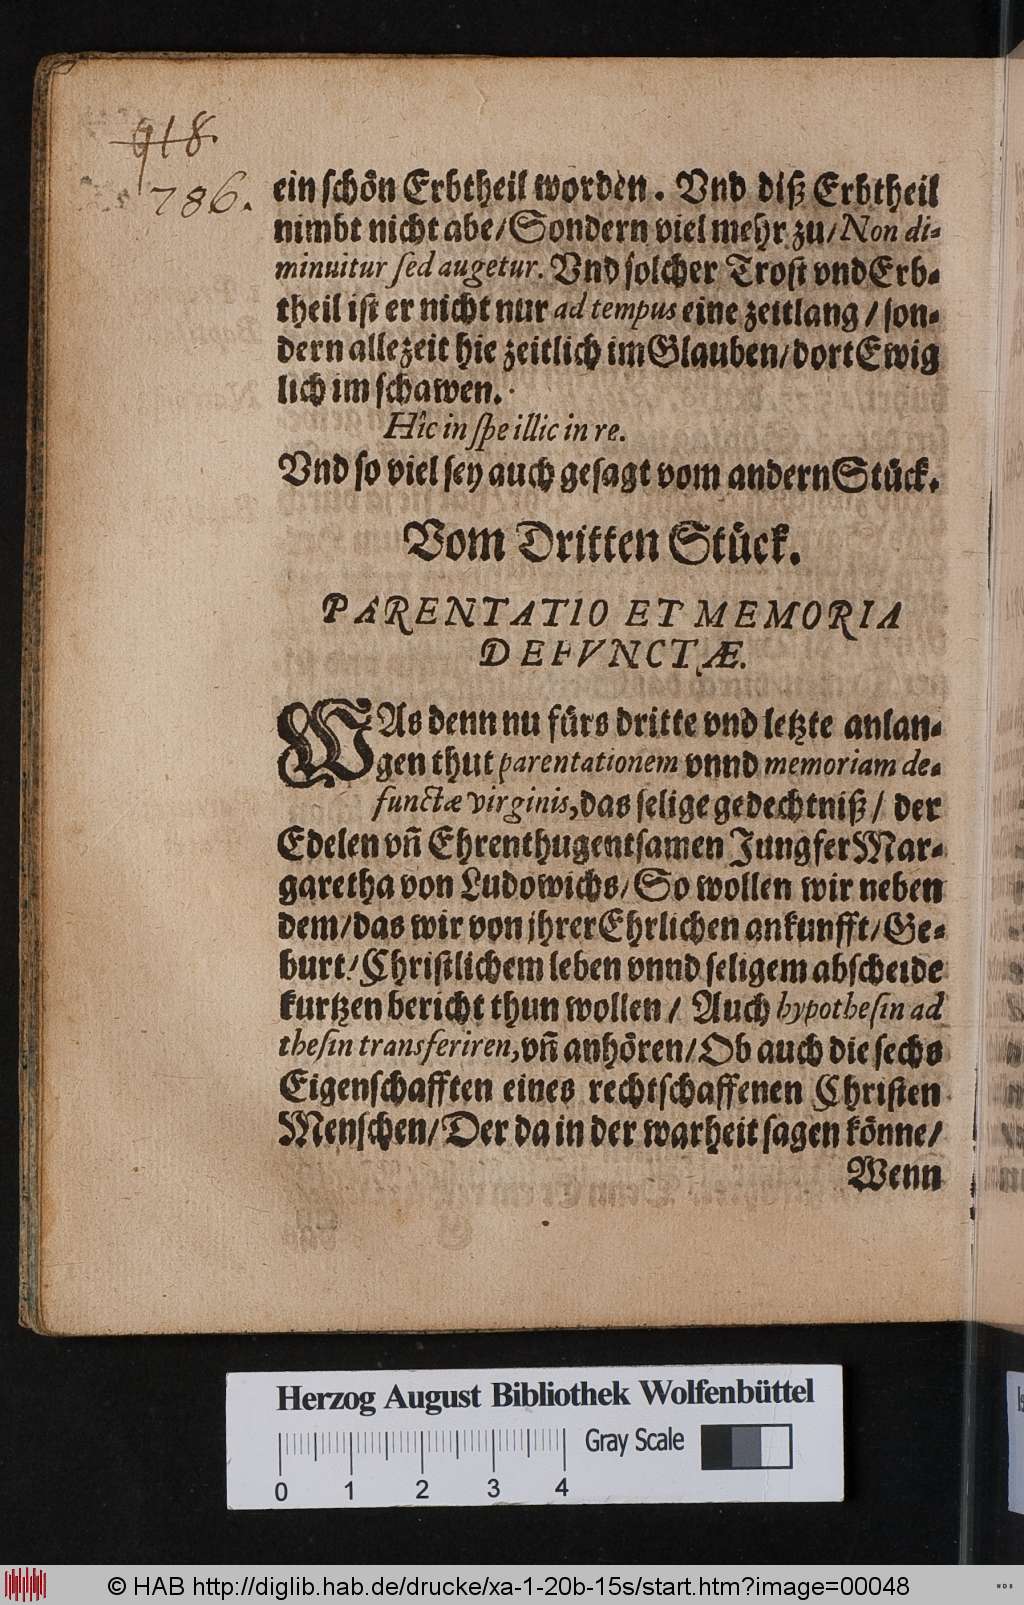 918.
786.
ein schön Erbtheil worden. Vnd diß Erbtheil
nimbt nicht abe/ Sondern viel mehr zu/ Non di-
minuitur sed augetur. Vnd solcher Trost vnd Erb-
theil ist er nicht nur ad tempus eine zeitlang / son-
dern allezeit hie zeitlich im Glauben/ dort Ewig
lich im schawen.
Hîc in spe illic in re.
Vnd so viel sey auch gesagt vom andern Stück.
Vom Dritten Stück.
PARENTATIO ET MEMORIA
DEFVNCTÆ.
WAs denn nu fürs dritte vnd letzte anlan-
gen thut parentationem vnnd memoriam de-
functæ virginis, das selige gedechtniß/ der
Edelen vñ Ehrenthugentsamen Jungfer Mar-
garetha von Ludowichs/ So wollen wir neben
dem/ das wir von jhrer Ehrlichen ankunfft/ Ge-
burt/ Christlichem leben vnnd seligem abscheide
kurtzen bericht thun wollen/ Auch hypothesin ad
thesin transferiren, vñ anhören/ Ob auch die sechs
Eigenschafften eines rechtschaffenen Christen
Menschen/ Der da in der warheit sagen könne/
Wenn
Herzog August Bibliothek Wolfenbüttel
Gray Scale
0 1 2 3 4
© HAB http://diglib.hab.de/drucke/xa-1-20b-15s/start.htm?image=00048